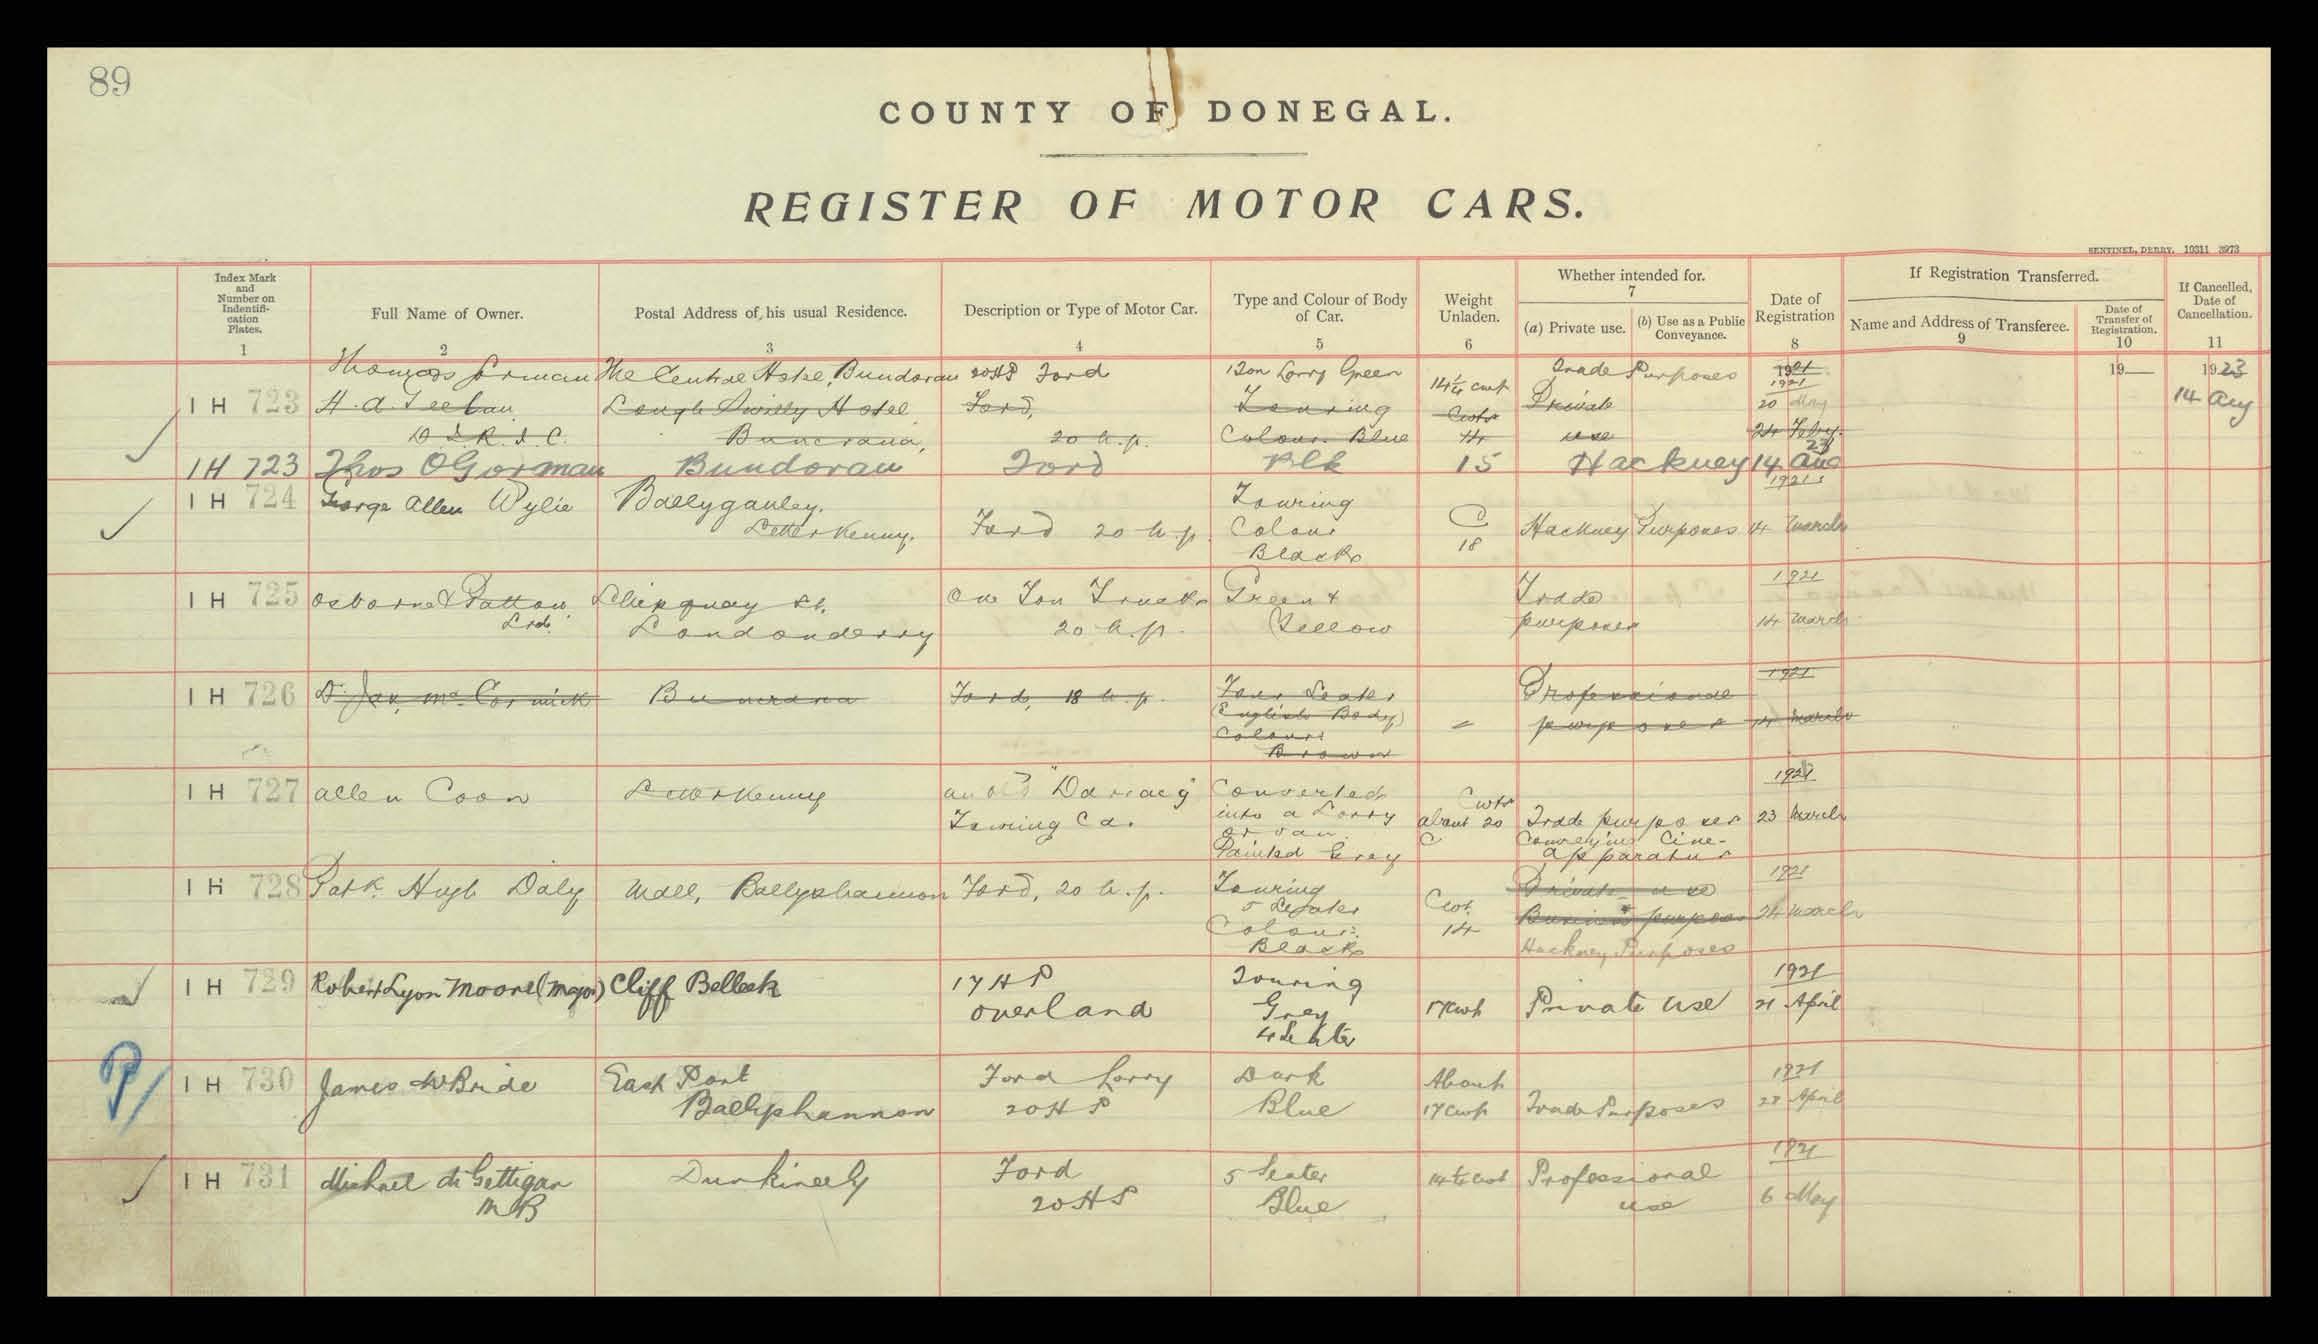 89
COUNTY OF DONEGAL.
REGISTER OF MOTOR CARS.
SENTINEL, DERRY. 10311 3973
Index Mark and Number on Indentifi-cation Plates. 1
Full Name of Owner. 2
Postal Address of his usual Residence. 3
Description or Type of Motor Car. 4
Type and Colour of Body of Car. 5
Weight Unladen. 6
Whether intended for. 7
(a) Private use.
(b) Use as a Public Conveyance.
Date of Registration 8
If Registration Transferred.
Name and Address of Transferee. 9
Date of Transfer of Registration. 10
If Cancelled, Date of Cancellation. 11
Thomas Gorman The Central Hotel, Bundoran 20HP Ford 1 Ton Lorry Green 14¼ cwt Trade Purposes 1921 20 May 19 1923 14 Aug
I H 723 H. A. Teeban D.I.R.I.C. Lough Swilly Hotel Buncrana, Ford, 20 h.p. Touring Colour Blue Cwts 14 Private use 24 Febry.
IH 723 Thos OGorman Bundoran Ford Blk 15 Hackney 14 Aug 23
I H 724 George Allen Wylie Ballyganley, Letterkenny. Ford 20 h.p. Touring Colour Black C 18 Hackney Purposes 1921 14 March
I H 725 Osborne & Patton Ltd. Shipquay St. Londonderry One Ton Truck 20 h.p. Green & Yellow Trade purposes 1921 14 March
I H 726 Dr. Jas. McCormick Buncrana Ford, 18 h.p. Four Seater (English Body) Colour: Brown Professional purposes 1921 14 March
I H 727 Allen Coon Letterkenny an old "Darracq" Touring Car. Converted into a Lorry or van. Painted Grey Cwts about 20 C Trade purposes Conveying Cine-apparatus 1921 23 March
I H 728 Patk. Hugh Daly Mall, Ballyshannon Ford, 20 h.p. Touring 5 Seater Colour: Black Cwt. 14 Private use Business purposes Hackney Purposes 1921 24 March
I H 729 Robert Lyon Moore (Major) Cliff Belleek 17 HP Overland Touring Grey 4 Seater 17 cwt Private Use 1921 21 April
I H 730 James McBride East Port Ballyshannon Ford Lorry 20HP Dark Blue About 17 cwt Trade Purposes 1921 28 April
I H 731 Michael McGettigan MB Dunkineely Ford 20HP 5 Seater Blue 14¼ cwt Professional use 1921 6 May